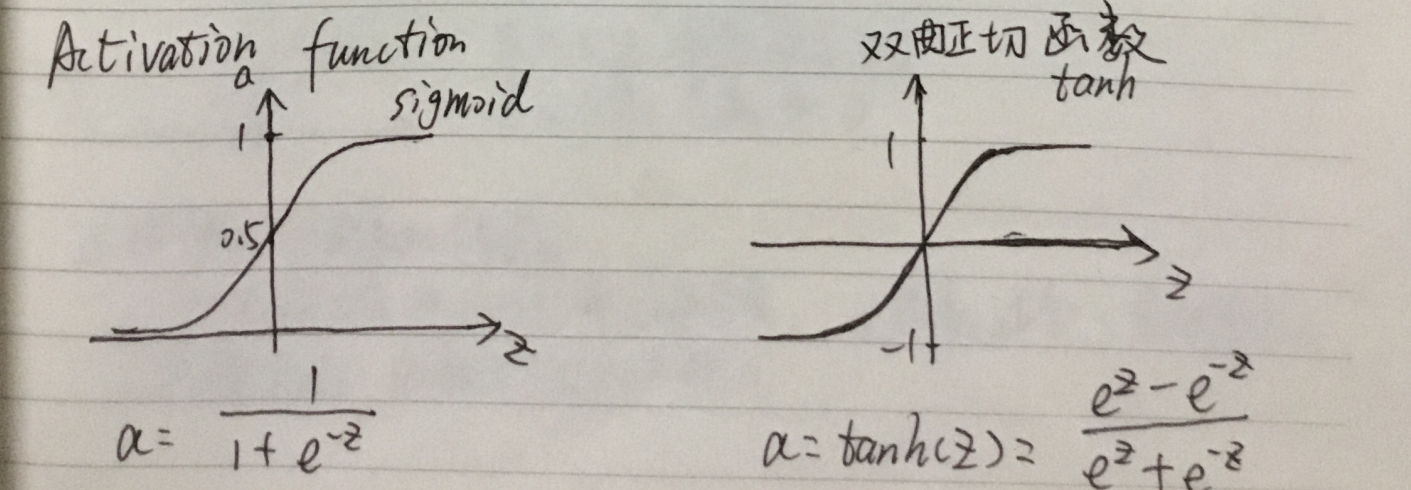 Activation function
a
sigmoid
1
0.5
z
a = 1 / (1 + e^{-z})
双曲正切函数
tanh
1
z
-1
a = tanh(z) = (e^z - e^{-z}) / (e^z + e^{-z})